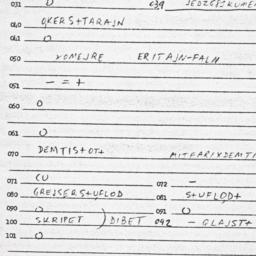 031 0 039 JEDZGESKUMEN
040 QKERS+TARAJN
041 0
050 VOMEJRE ERITAJN-FALN
051 - = +
060 0
061 0
070 DEMTIS+OT+ MITFARIXDEMTI
071 CU 072 -
080 GREJSERS+UFLOD 081 S+UFLOD+
090 0 091 0
100 SKRIPET ) DIBET 092 - GLAJST+
101 0